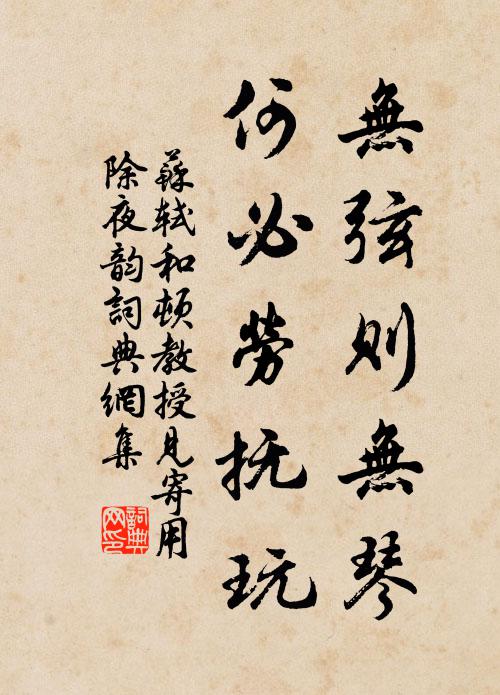 無弦则無琴
何必勞抚玩
蘇轼和顿教授見寄用
除夜韵詞典網集
詞典
网印